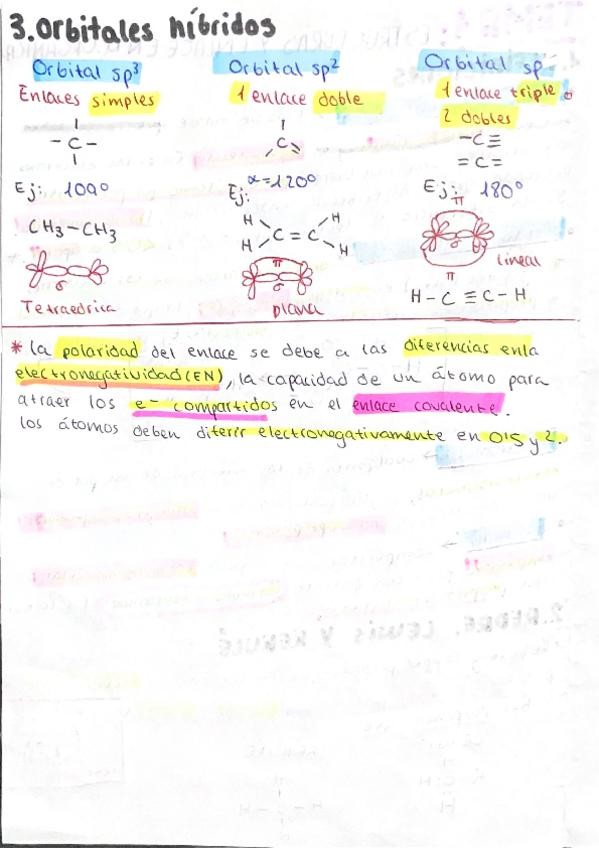 3. Orbitales híbridos
Orbital sp³
Enlaces simples
- C -
Ej: 109º
CH₃-CH₃
σ
Tetraedrica
Orbital sp²
1 enlace doble
C
α=120º
Ej:
H H
C = C
H H
π
σ
plana
Orbital sp
1 enlace triple o
2 dobles
-C≡
=C=
Ej: 180º
π
σ
lineal
π
H-C≡C-H
* La polaridad del enlace se debe a las diferencias en la
electronegatividad (EN), la capacidad de un átomo para
atraer los e- compartidos en el enlace covalente.
Los átomos deben diferir electronegativamente en 0'5 y 2.
2. REDRE, LEWIS Y KEKULÉ